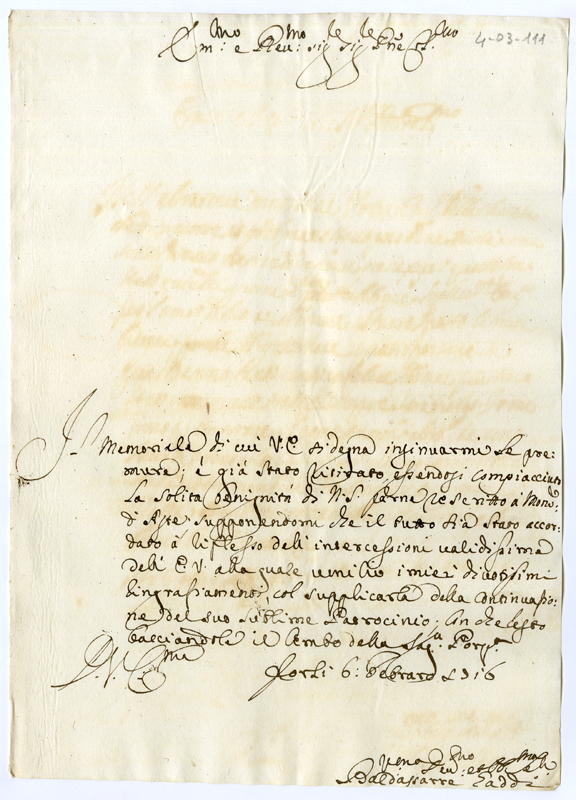 4-03-111
Em:mo e Reu:mo Sig.re Sig.re Pne C.mo
Il Memoriale di cui V.E. si degna insinuarmi le pre:
mure, é già stato ritirato essendosi compiacciuta
la solita benignità di N.S. farne rescritto à Mons:
d'Aste supponendomi che il tutto sia stato accor:
dato à riflesso dell'intercessioni validissime
dell'E.V. alla quale umilio i miei divotissimi
ringraziamenti, col supplicarla della continuazio:
ne del suo sublime Patrocinio; In che resto
bacciandole il lembo della Sag.a Porp.a
D. V. E.ma
Forlì 6: Febraro 1716
Umo Diu:mo et Obl.mo Se:
Baldassarre Gaddi